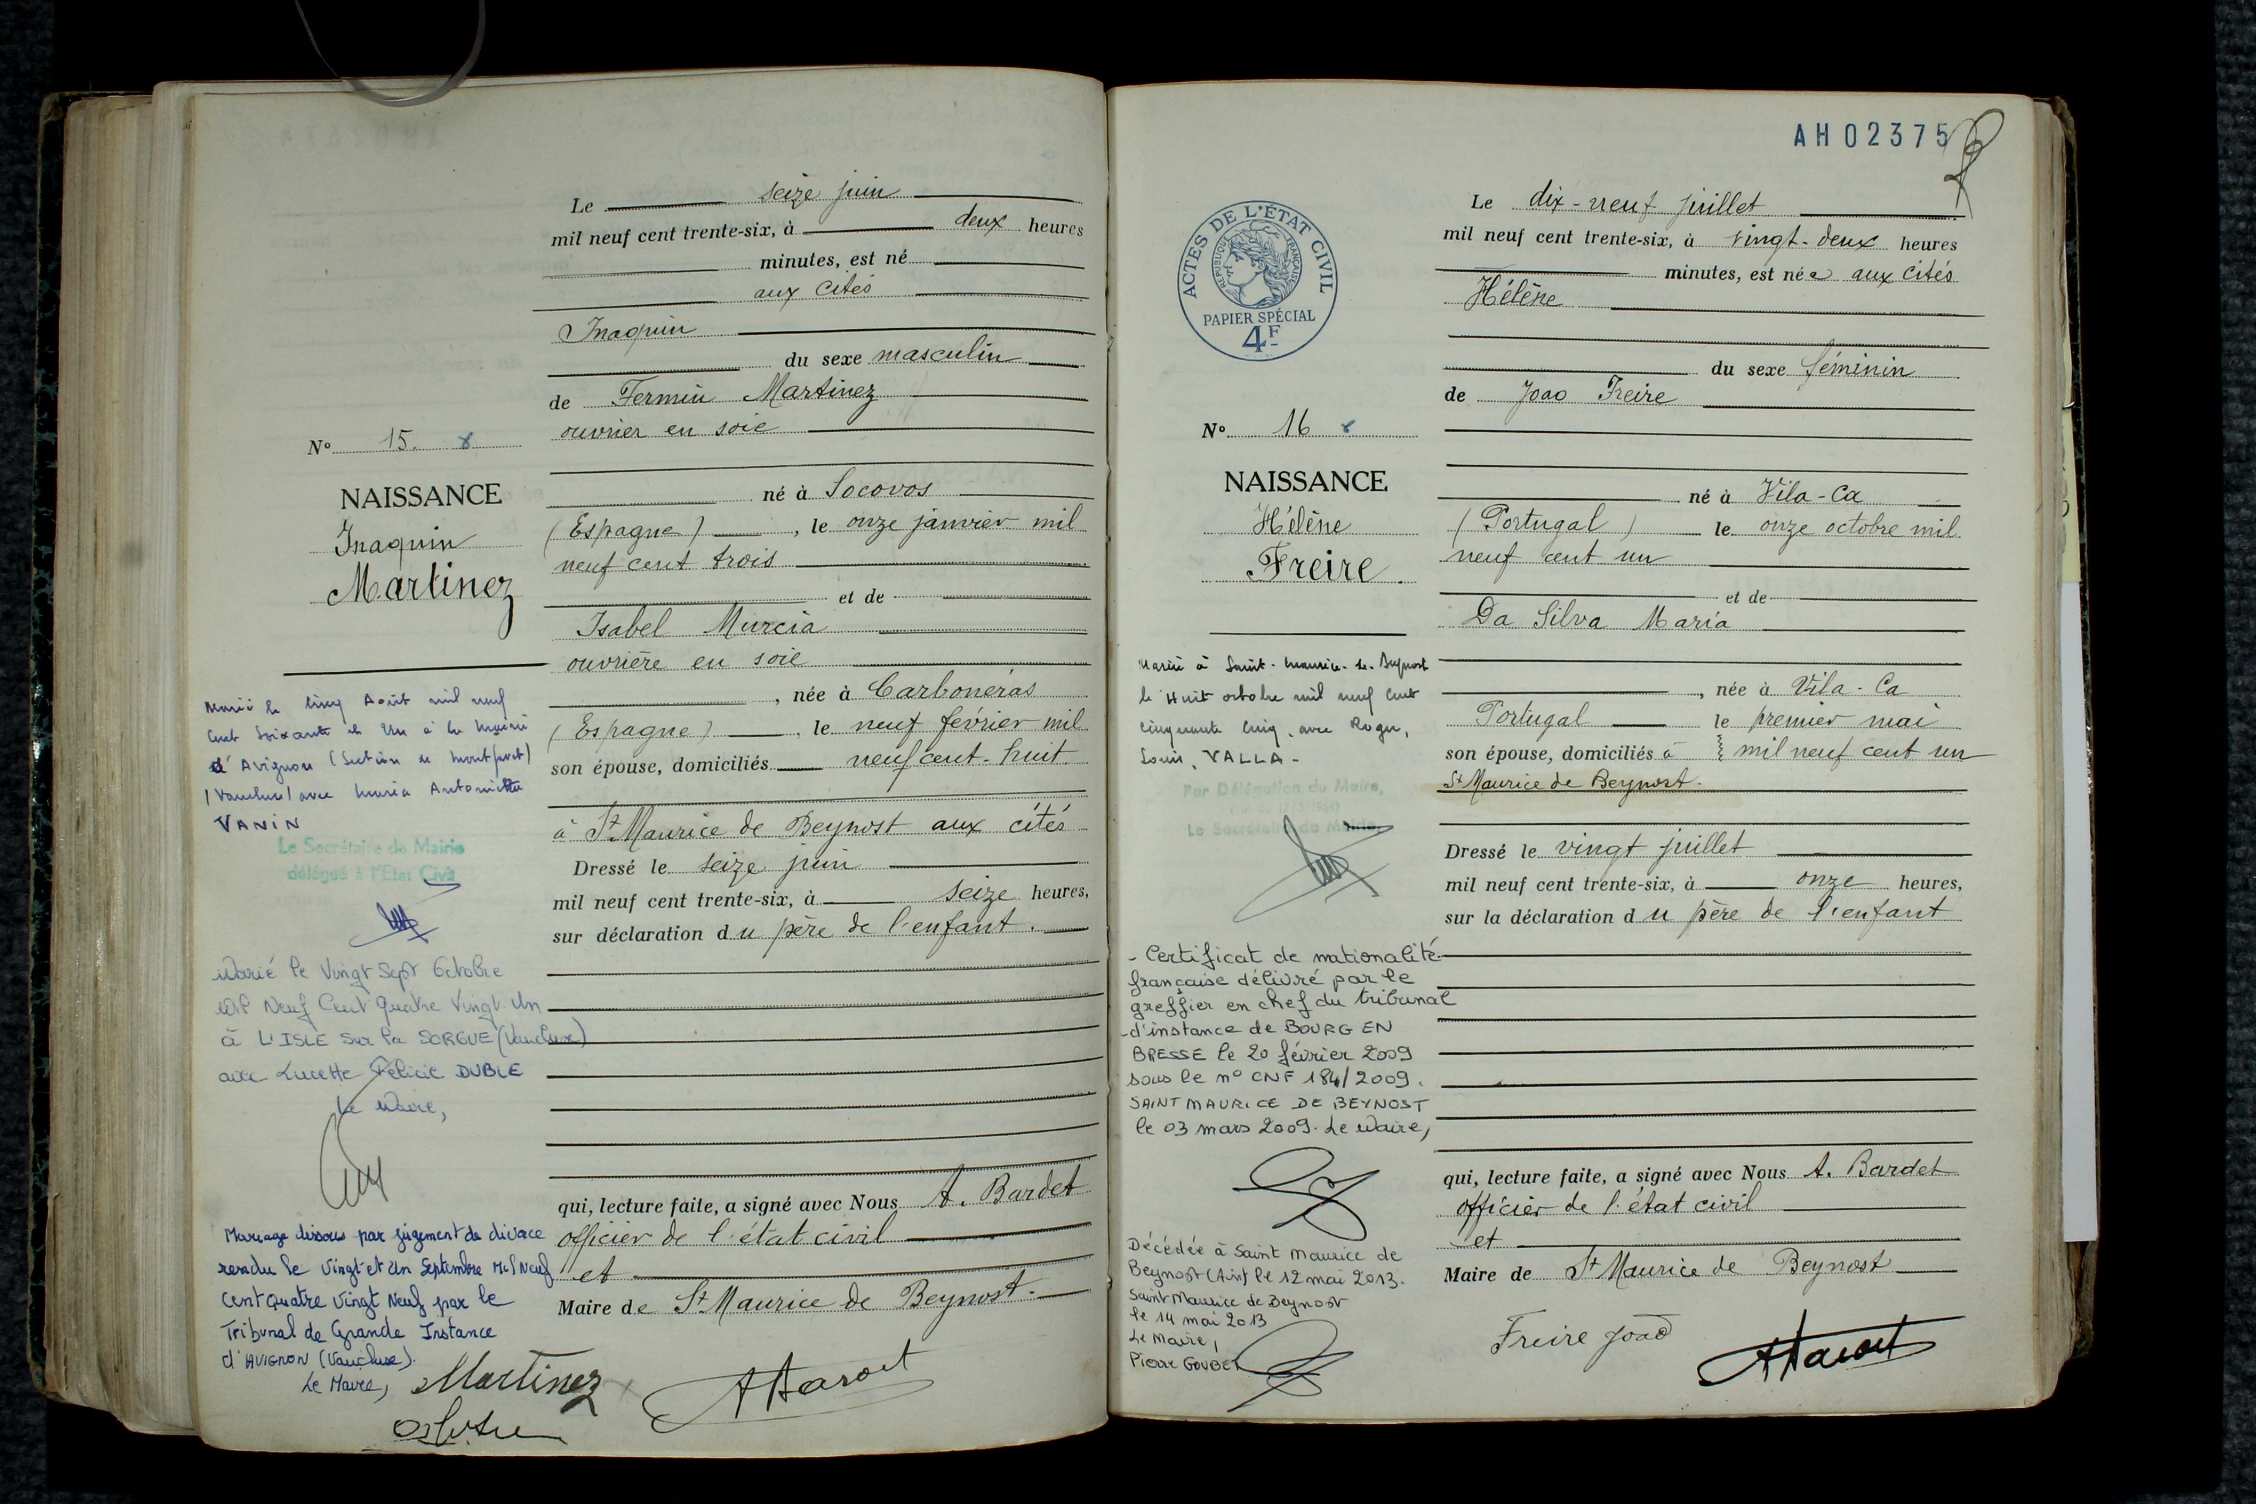 Le seize juin
mil neuf cent trente-six, à deux heures
minutes, est né
aux cités
Inaquin
du sexe masculin
de Fermin Martinez
ouvrier en soie
né à Socovos
(Espagne), le onze janvier mil
neuf cent trois
et de
Isabel Murcia
ouvrière en soie
, née à Carboneras
(Espagne), le neuf février mil
son épouse, domiciliés neuf cent-huit
à St Maurice de Beynost aux cités
Dressé le seize juin
mil neuf cent trente-six, à seize heures,
sur déclaration du père de l'enfant.
qui, lecture faite, a signé avec Nous A. Bardet
officier de l'état civil
et
Maire de St Maurice de Beynost.
No 15.
NAISSANCE
Inaquin
Martinez
Marié le cinq Août mil neuf
cent soixante et un à la mairie
d'Avignon (Section de Montfavet)
(Vaucluse) avec Maria Antoinetta
VANIN
Le Secrétaire de Mairie
délégué à l'Etat Civil
Marié le Vingt Sept Octobre
Mil Neuf Cent Quatre Vingt Un
à L'ISLE sur la SORGUE (Vaucluse)
avec Lucette Félicie DUBLE
Le Maire,
Mariage dissous par jugement de divorce
rendu le Vingt et Un Septembre Mil Neuf
Cent Quatre Vingt Neuf par le
Tribunal de Grande Instance
d'AVIGNON (Vaucluse).
Le Maire,
Martinez
AH02375
Le dix-neuf juillet
mil neuf cent trente-six, à vingt-deux heures
minutes, est née aux cités
Hélène
du sexe féminin
de Joao Freire
né à Vila-Ca
(Portugal) le onze octobre mil
neuf cent un
et de
Da Silva Maria
, née à Vila-Ca
Portugal le premier mai
son épouse, domiciliés à mil neuf cent un
St Maurice de Beynost.
Dressé le vingt juillet
mil neuf cent trente-six, à onze heures,
sur la déclaration du père de l'enfant
qui, lecture faite, a signé avec Nous A. Bardet
officier de l'état civil
et
Maire de St Maurice de Beynost
Freire Joao
ACTES DE L'ÉTAT CIVIL
RÉPUBLIQUE FRANÇAISE
PAPIER SPÉCIAL
4F
No 16
NAISSANCE
Hélène
Freire.
Mariée à Saint-Maurice-de-Beynost
le Huit octobre mil neuf cent
cinquante cinq, avec Roger,
Louis, VALLA-
Par Délégation du Maire,
Le Secrétaire de Mairie
- Certificat de nationalité
française délivré par le
greffier en chef du tribunal
d'instance de BOURG EN
BRESSE le 20 février 2009
sous le no CNF 184/2009.
SAINT MAURICE DE BEYNOST
le 03 mars 2009. Le Maire,
Décédée à Saint Maurice de
Beynost (Ain) le 12 mai 2013.
Saint Maurice de Beynost
le 14 mai 2013
Le Maire,
Pierre GOUBET